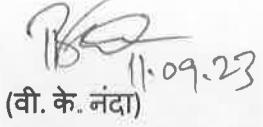 11.09.23
(वी. के. नंदा)